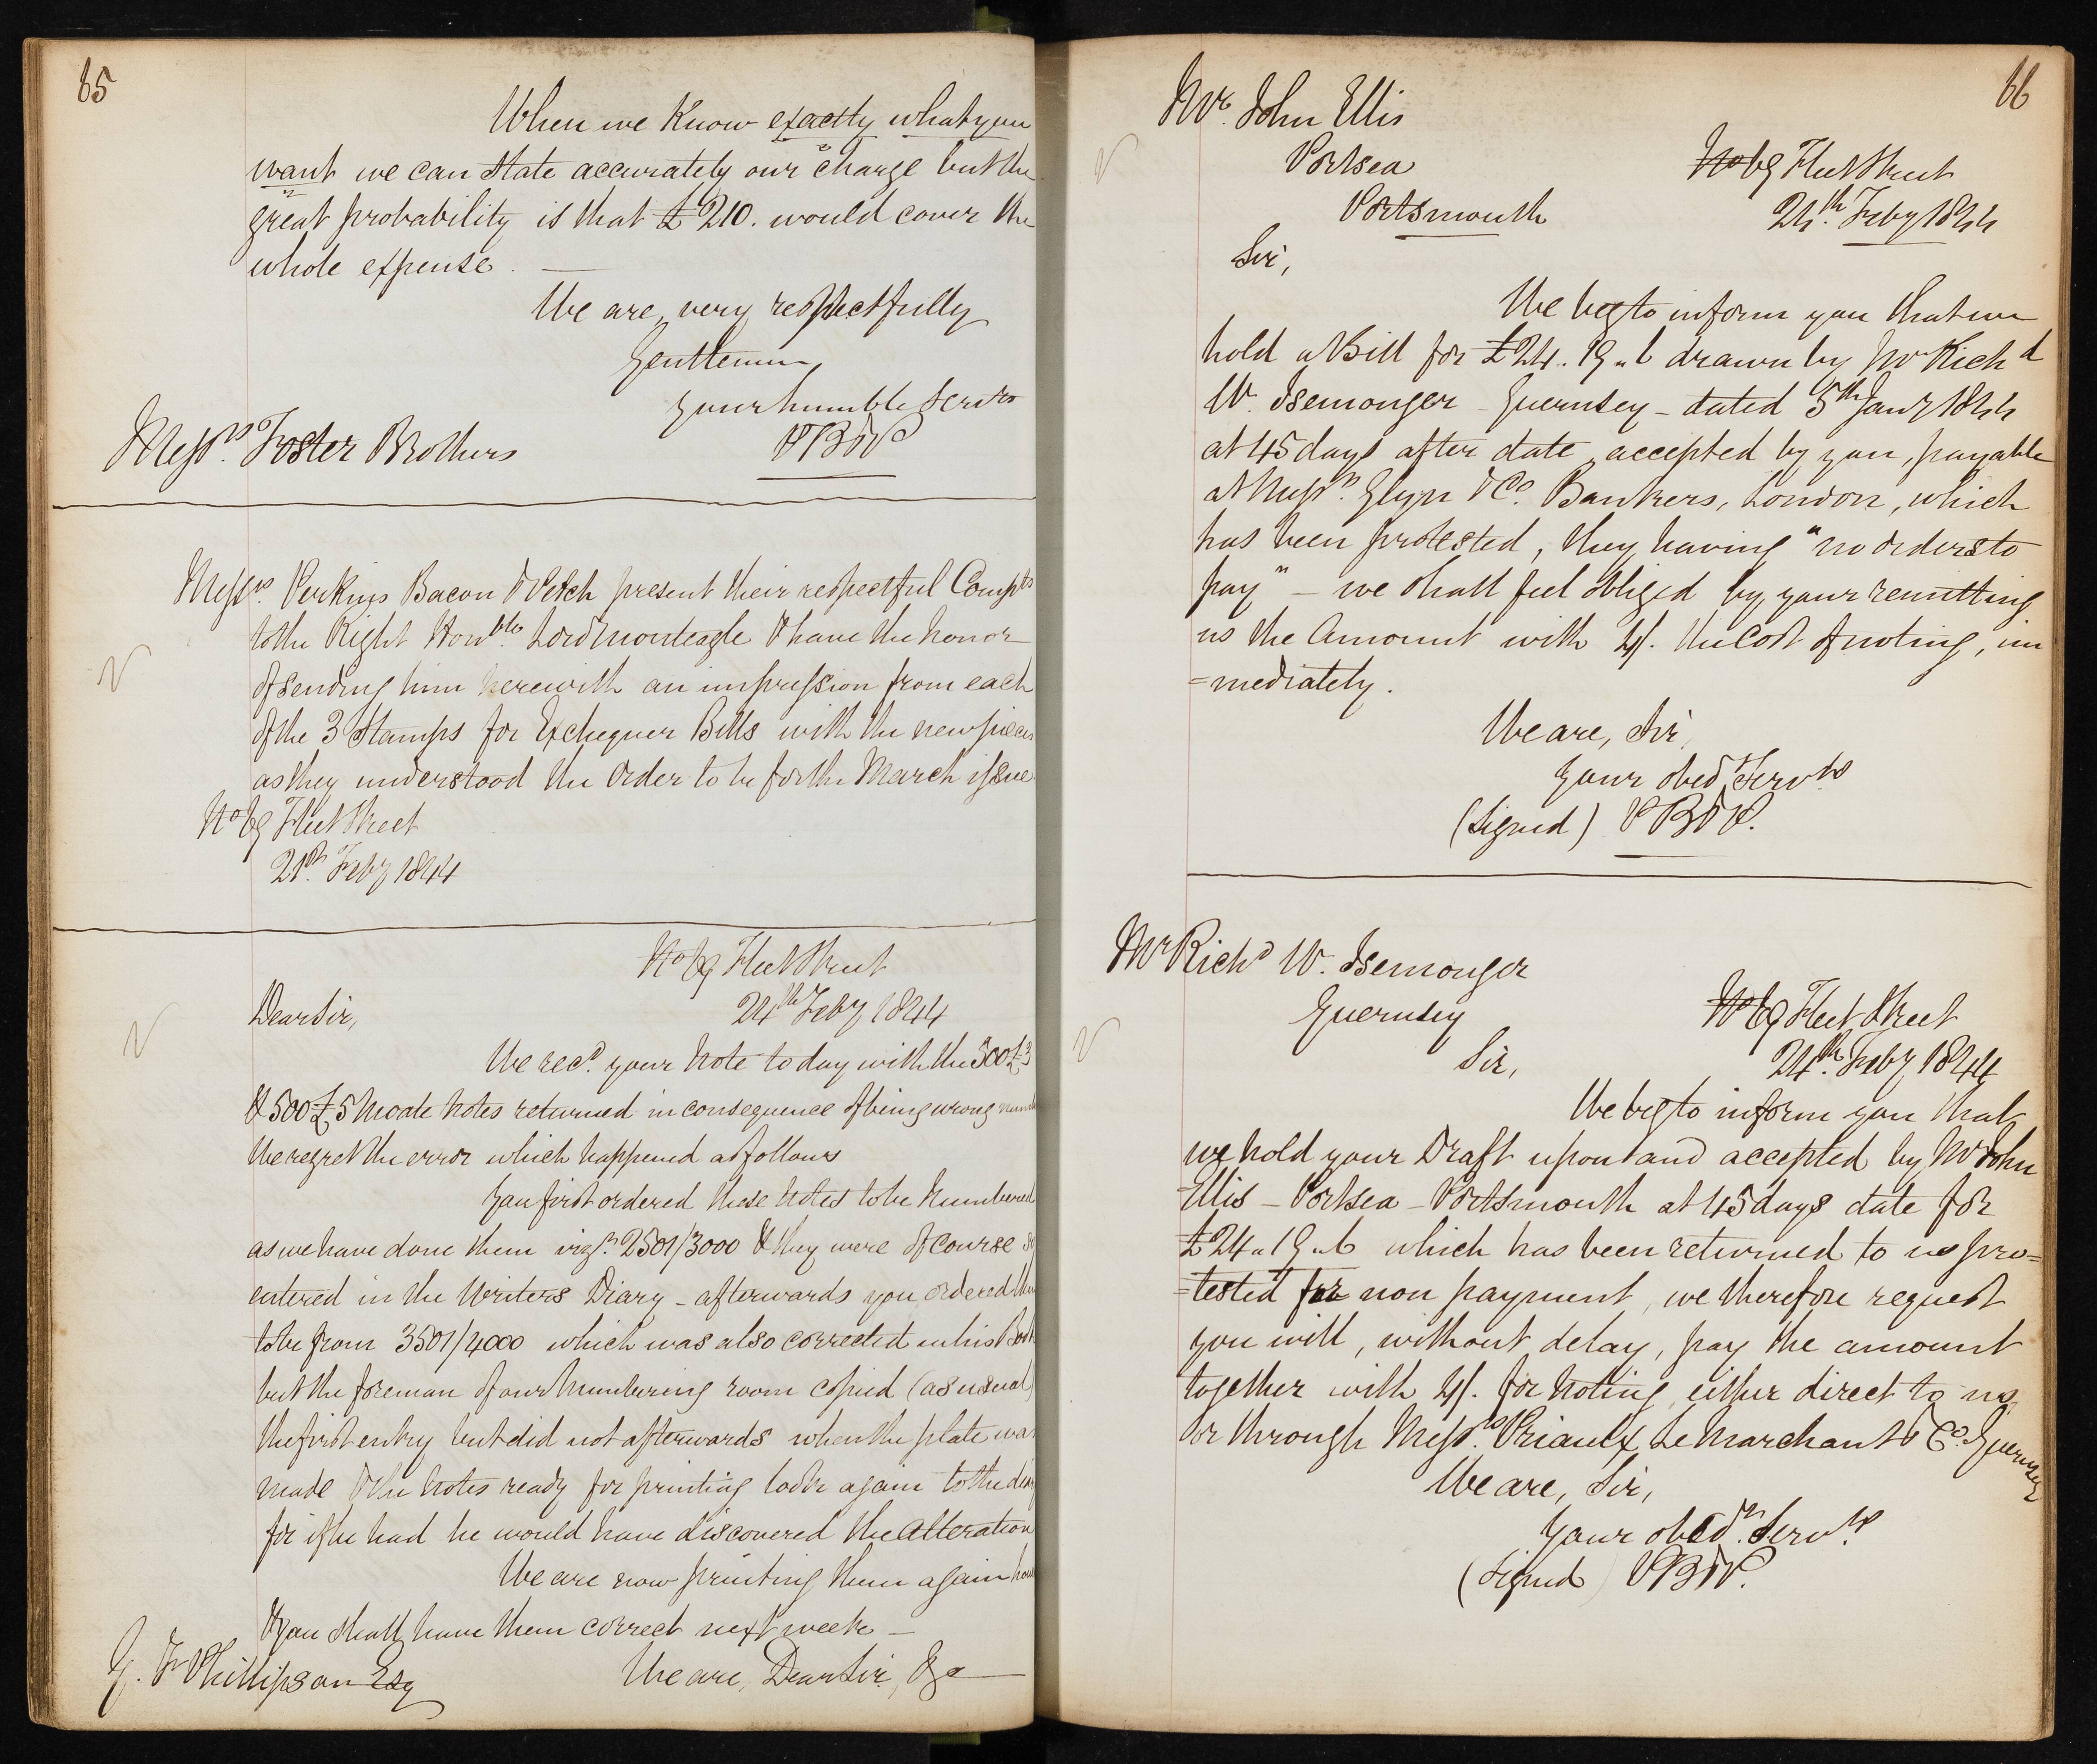 65
When we Know exactly what you
want we can state accurately our charge but the
great probability is that £210. would cover the
whole expense. —
We are, very respectfully
Gentlemen
your humble Servts
PB&P
Messrs. Foster Brothers
Messrs. Perkins Bacon & Petch present their respectful Compts
to the Right Honble. Lord Monteagle & have the honor
of sending him herewith an impression from each
of the 3 Stamps for Exchequer Bills with the new pieces
as they understood the Order to be for the March issue
No 69 Fleet Street
21st. Feby 1844
No 69 Fleet Street
24th Feby 1844
Dear Sir,
We recd. your Note to day with the 300 £3
& 500 £5 Moate Notes returned in consequence of being wrong
We regret the error which happened as follows
You first ordered these Notes to be Numbered
as we have done them vizt. 2501/3000 & they were of course so
entered in the Writers Diary – afterwards you ordered them
to be from 3501/4000 which was also corrected in his Book
but the foreman of our Numbering room copied (as usual)
the first entry but did not afterwards when the plate was
made & the Notes ready for printing look again to the diary
for if he had he would have discovered the Alteration
We are now printing them again
& you shall have them correct next week —
We are, Dear Sir, &c
G. F Phillipson Esq
66
Mr. John Ellis
Portsea
Portsmouth
No 69 Fleet Street
24th. Feby 1844
Sir,
We beg to inform you that we
hold a Bill for £24.19.6 drawn by Mr Richd
W. Isemonger – Guernsey – dated 5th Jany 1844
at 45 days after date, accepted by you, payable
at Messrs. Glyn & Co. Bankers, London, which
has been protested, they having "no orders to
pay" – we shall feel obliged by your remitting
us the Amount with 4/. the Cost of noting, im
=mediately.
We are, Sir,
Your obedt Servts
(Signed) PB&P.
Mr Richd W. Isemonger
Guernsey
No 69 Fleet Street
24th. Feby 1844
Sir,
We beg to inform you that
we hold your Draft upon and accepted by Mr John
Ellis – Portsea – Portsmouth at 45 days date for
£24"19"6 which has been returned to us pro=
=tested for non payment, we therefore request
you will, without delay, pay the amount
together with 4/. for Noting, either direct to us,
or through Messrs. Priaulx Le Marchant & Co. Guernsey
We are, Sir,
Your obedt. Servts.
(Signed) PB&P.